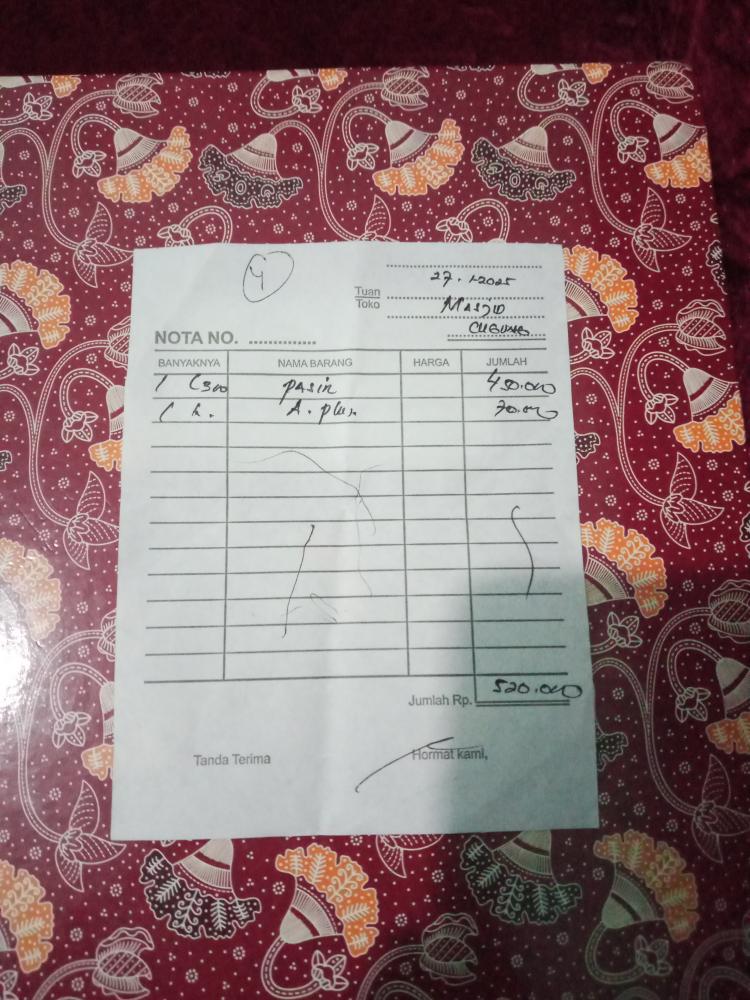 4
27.1-2025
Tuan
Toko
MASJID
NOTA NO. ................
BANYAKNYA NAMA BARANG HARGA JUMLAH
1 pasir 450.000
1 A. plus 70.000
Jumlah Rp. 520.000
Tanda Terima Hormat kami,